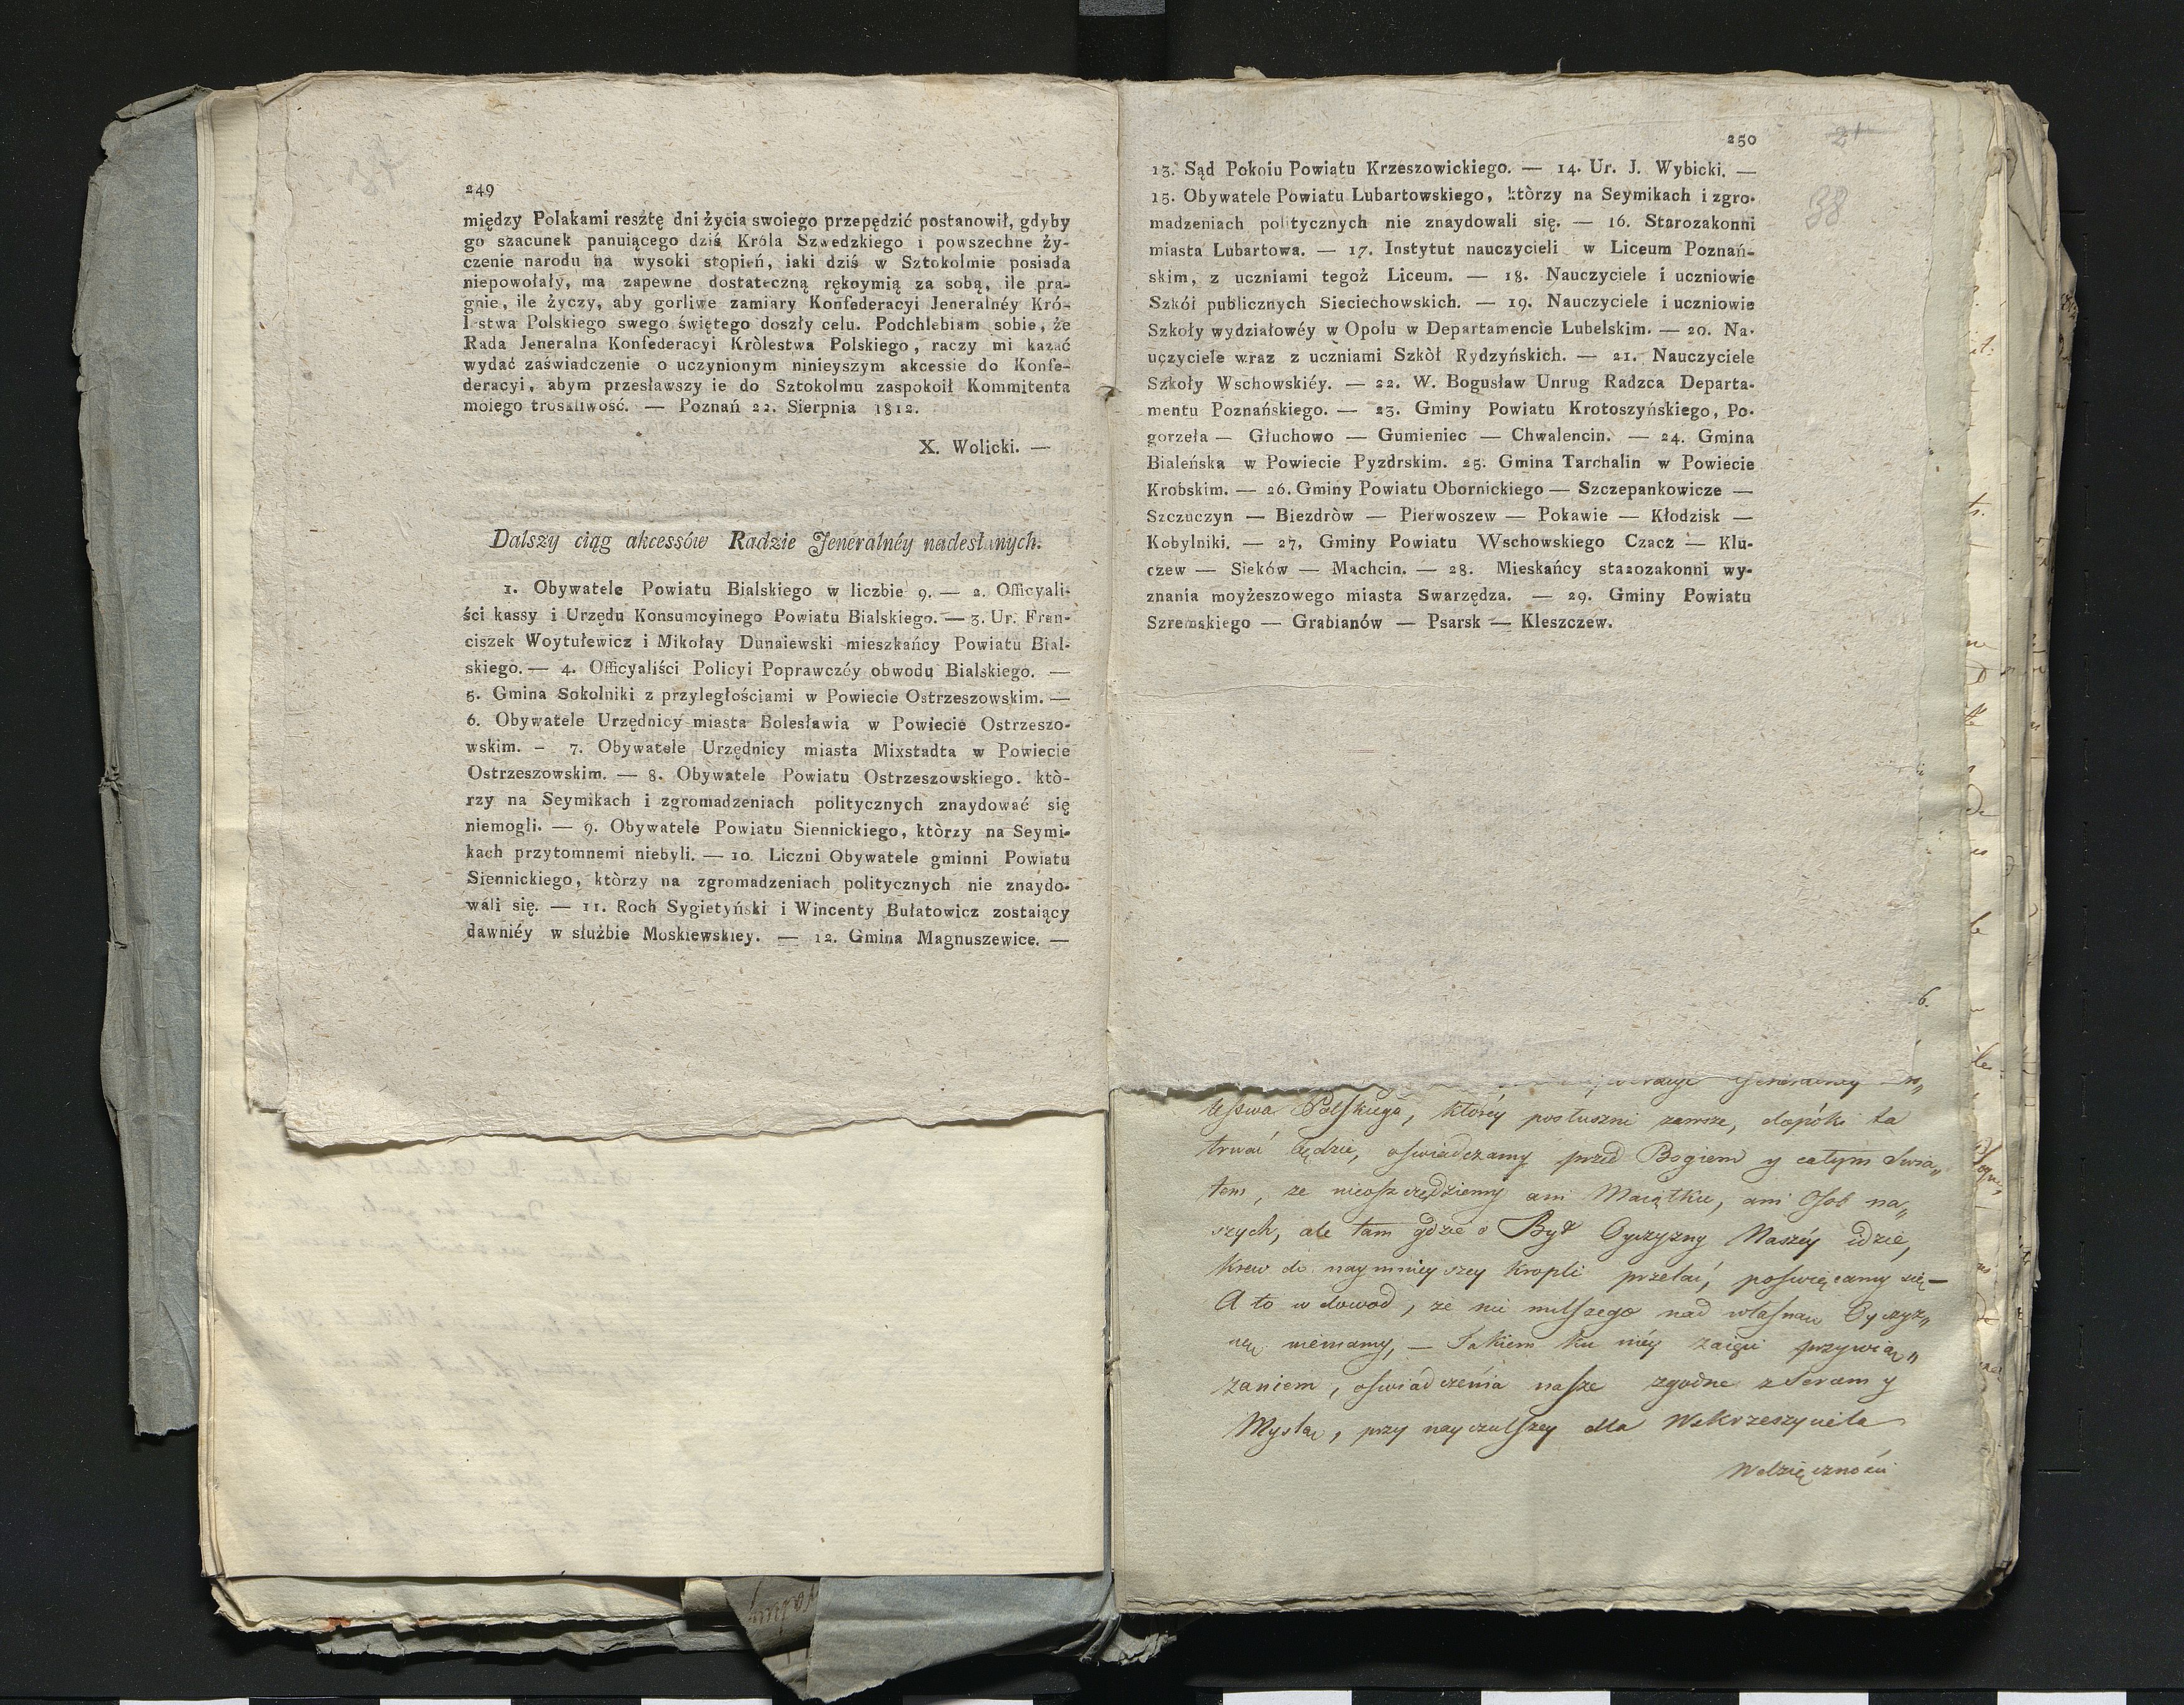 249
między Polakami resztę dni życia swoiego przepędzić postanowił, gdyby
go szacunek panuiącego dziś Króla Szwedzkiego i powszechne ży-
czenie narodu na wysoki stopień, iaki dziś w Sztokolmie posiada
niepowołały, ma zapewne dostateczną rękoymią za sobą, ile pra-
gnie, ile życzy, aby gorliwe zamiary Konfederacyi Jeneralnéy Kró-
l stwa Polskiego swego świętego doszły celu. Podchlebiam sobie, że
Rada Jeneralna Konfederacyi Kròlestwa Polskiego, raczy mi kazać
wydać zaświadczenie o uczynionym ninieyszym akcessie do Konfe-
deracyi, abym przesławszy ie do Sztokolmu zaspokoił Kommitenta
moiego troskliwość. — Poznań 22. Sierpnia 1812.
X. Wolicki. —
Dalszy ciąg akcessów Radzie Jeneralnéy nadesłanych.
1. Obywatele Powiatu Bialskiego w liczbie 9. — 2. Officyali-
ści kassy i Urzędu Konsumcyinego Powiatu Bialskiego. — 3. Ur. Fran-
ciszek Woytułewicz i Mikołay Dunaiewski mieszkańcy Powiatu Bial-
skiego. — 4. Officyaliści Policyi Poprawczéy obwodu Bialskiego. —
5. Gmina Sokolniki z przyległościami w Powiecie Ostrzeszowskim. —
6. Obywatele Urzędnicy miasta Bolesławia w Powiecie Ostrzeszo-
wskim. — 7. Obywatele Urzędnicy miasta Mixstadta w Powiecie
Ostrzeszowskim. — 8. Obywatele Powiatu Ostrzeszowskiego.ktò-
rzy na Seymikach i zgromadzeniach politycznych znaydować się
niemogli. — 9. Obywatele Powiatu Siennickiego, ktòrzy na Seymi-
kach przytomnemi niebyli. — 10. Liczni Obywatele gminni Powiatu
Siennickiego, ktòrzy na zgromadzeniach politycznych nie znaydo-
wali się. — 11. Roch Sygietyński i Wincenty Bułatowicz zostaiący
dawniéy w służbie Moskiewskiey. — 12. Gmina Magnuszewice. —
250
21
38
13. Sąd Pokoiu Powiatu Krzeszowickiego. — 14. Ur. J. Wybicki. —
15. Obywatele Powiatu Lubartowskiego, ktòrzy na Seymikach i zgro-
madzeniach politycznych nie znaydowali się. — 16. Starozakonni
miasta Lubartowa. — 17. Instytut nauczycieli w Liceum Poznań-
skim, z uczniami tegoż Liceum. — 18. Nauczyciele i uczniowie
Szkół publicznych Sieciechowskich. — 19. Nauczyciele i uczniowie
Szkoły wydziałowéy w Opolu w Departamencie Lubelskim. — 20. Na-
uczyciele wraz z uczniami Szkòł Rydzyńskich. — 21. Nauczyciele
Szkoły Wschowskiéy. — 22. W. Bogusław Unrug Radzca Departa-
mentu Poznańskiego. — 23. Gminy Powiatu Krotoszyńskiego, Po-
gorzeła — Głuchowo — Gumieniec — Chwalencin. — 24. Gmina
Bialeńska w Powiecie Pyzdrskim. 25. Gmina Tarchalin w Powiecie
Krobskim. — 26. Gminy Powiatu Obornickiego — Szczepankowicze —
Szczuczyn — Biezdròw — Pierwoszew — Pokawie — Kłodzisk —
Kobylniki. — 27, Gminy Powiatu Wschowskiego Czacz — Klu-
czew — Sieków — Machcin. — 28. Mieskańcy stazozakonni wy-
znania moyżeszowego miasta Swarzędza. — 29. Gminy Powiatu
Szremskiego — Grabianów — Psarsk — Kleszczew.
6.
Generalney
lestwa Polskiego, któréy posłuszni zawsze, dopóki ta
trwać będzie, oswiadczamy przed Bogiem y całym Swia„
tem, ze nieoszczędziemy ani Maiątku, ani Osob na„
szych, ale tam gdzie o Byt Oyczyzny Naszéy idzie,
krew do naymnieyszey kropli przelać, poswięcamy się —
A to w dowod, ze nic milszego nad własnaw Oyczyz„
naw niemamy, — Takiem ku niéy zaięci przywiaw„
zaniem, oswiadczenia nasze zgodne z Sercem y
Myslaw, przy nayczulszey dla Wskrzesiciela
Wdzięcznosci